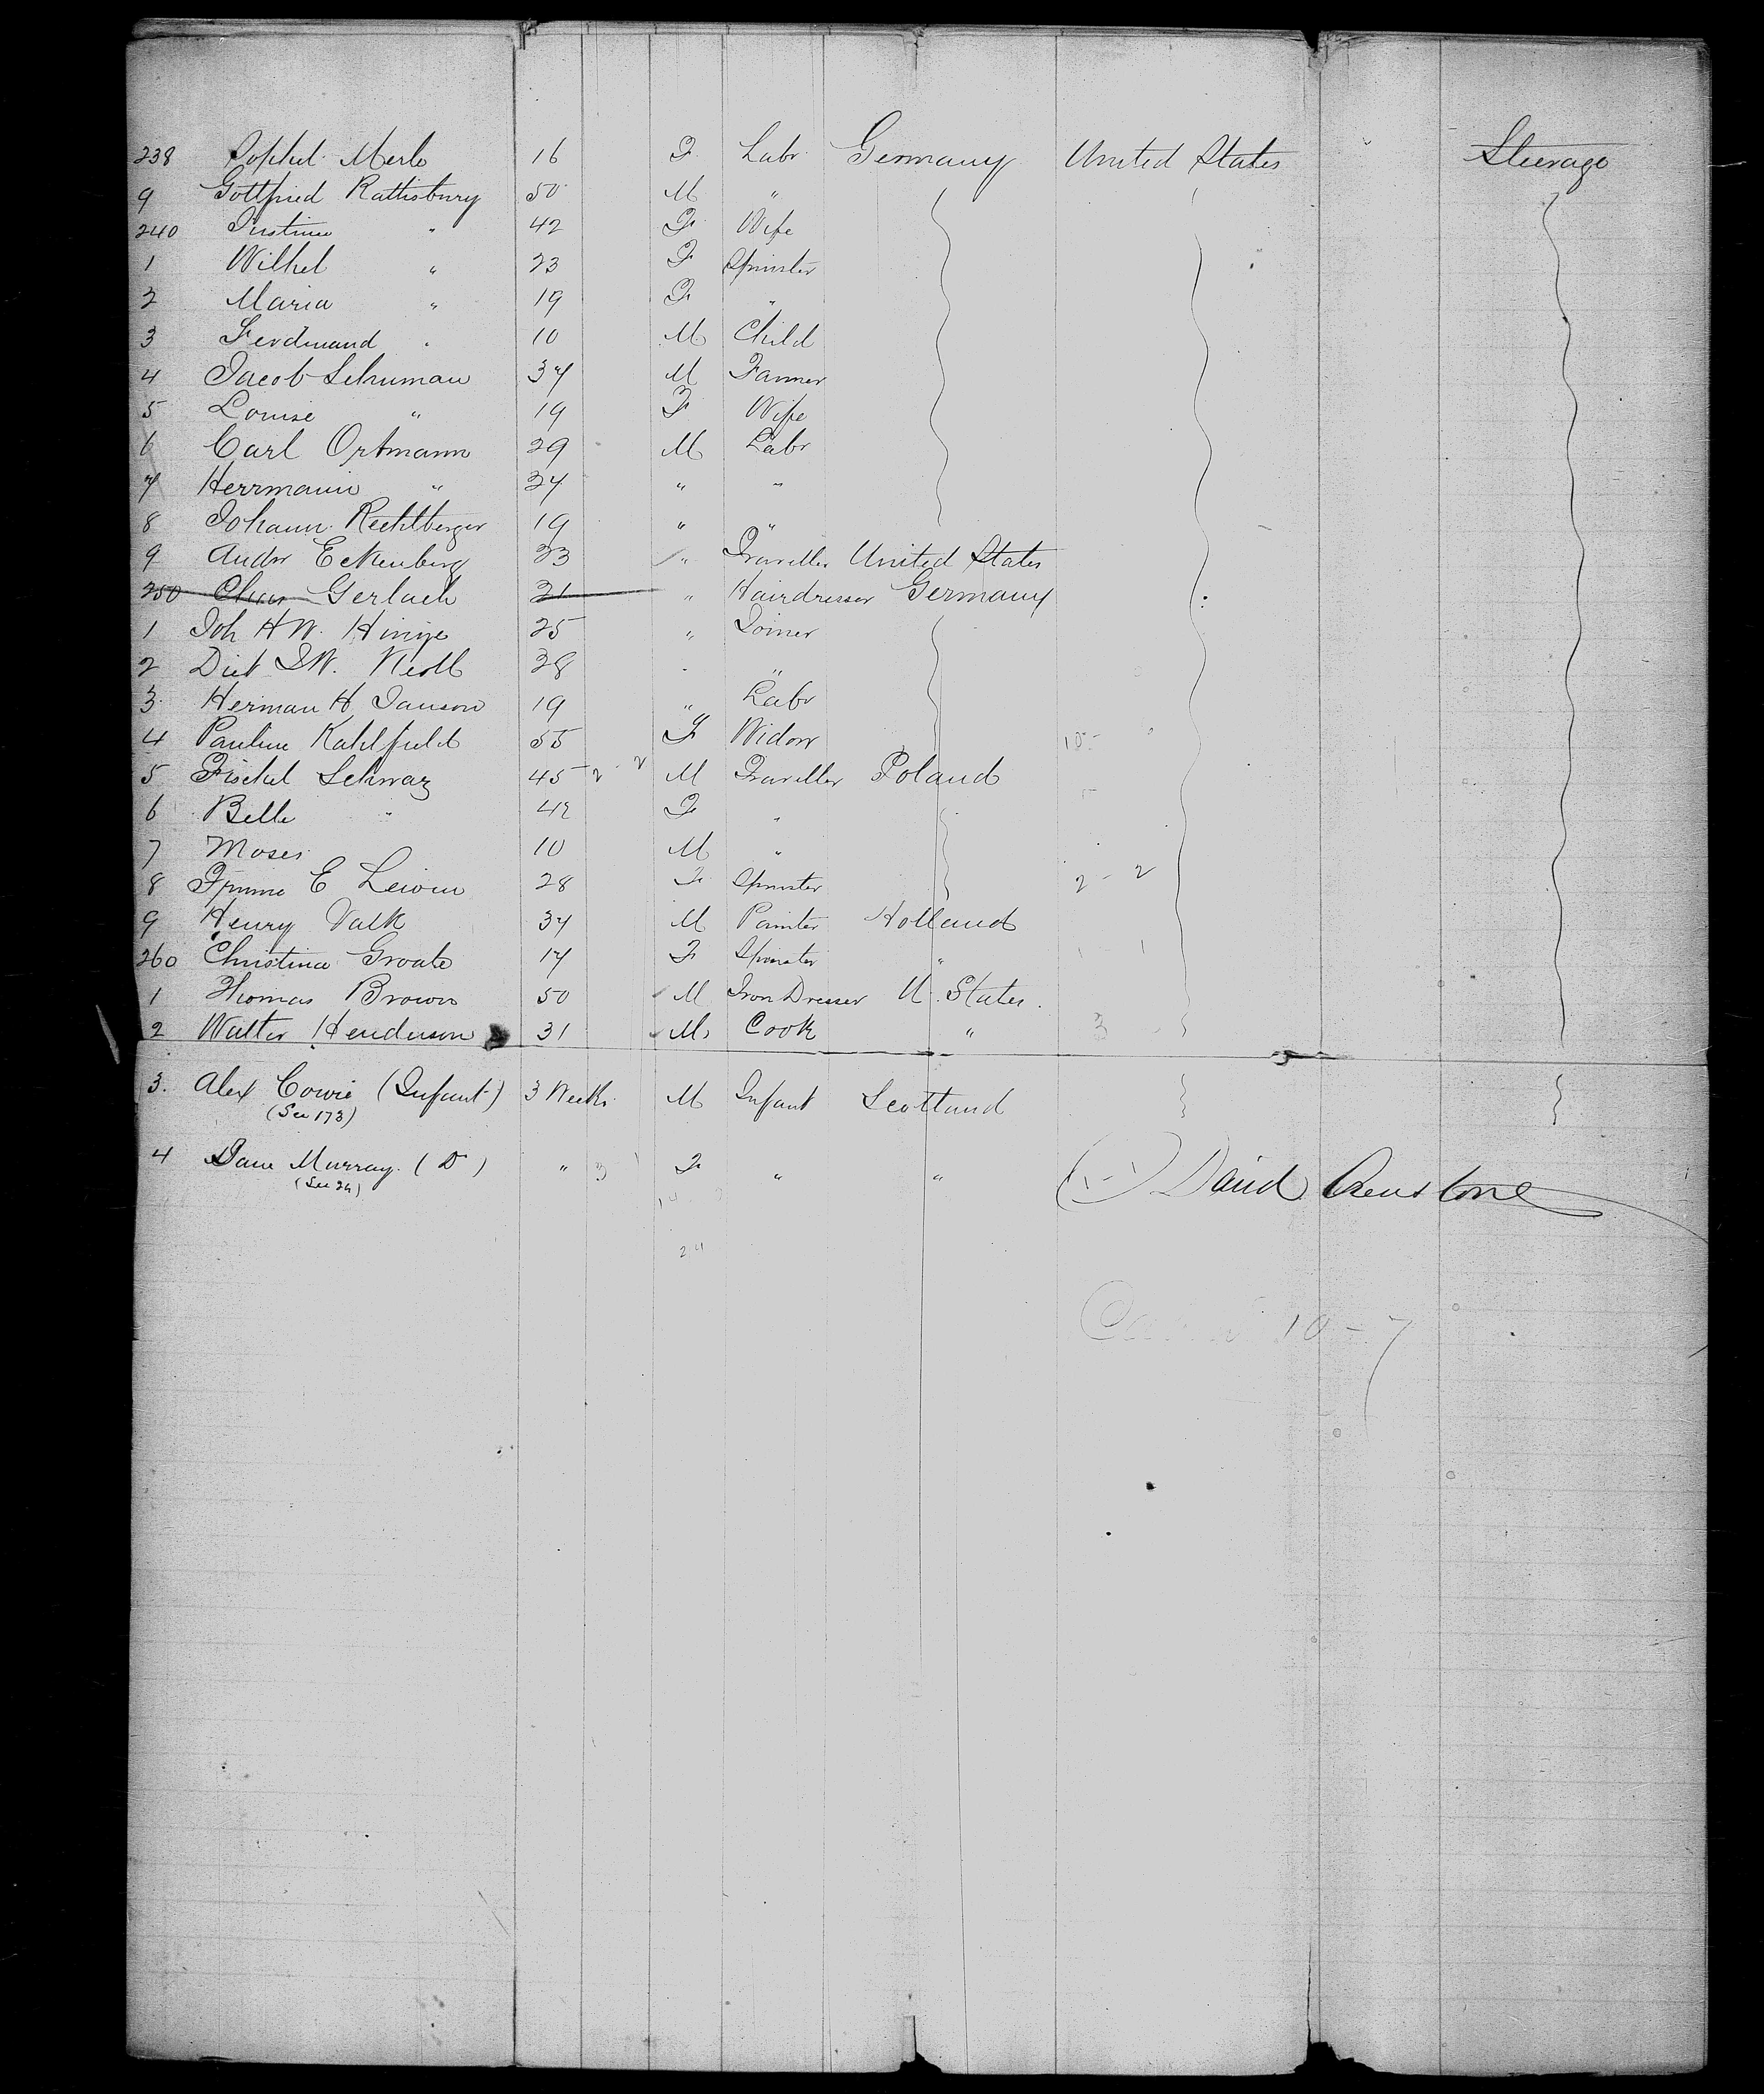 238 Sophel Merle 16 F Labr Germany United States Steerage
9 Gottfried Rattisburg 50 M "
240 Justine " 42 F Wife
1 Wilhel " 23 F Spinster
2 Maria " 19 F "
3 Ferdinand " 10 M Child
4 Jacob Schuman 34 M Farmer
5 Louise " 19 F Wife
6 Carl Ortmann 29 M Labr
7 Herrmann " 24 " "
8 Johann Rechtberger 19 " "
9 Andw Eckenberg 23 " Traveller United States
250 Chas Gerlach 21 " Hairdresser Germany
1 Joh H W. Hinje 25 " Joiner
2 Diet J W. 28 "
3 Herman H Janson 19 " Labr
4 Pauline Kahlfeld 55 F Widow
5 Fischel Schwarz 45 M Traveller Poland
6 Belle " 42 F "
7 Moses 10 M "
8 E 28 F Spinster
9 Henry Valk 34 M Painter Holland
260 Christina Groate 17 F Spinster "
1 Thomas Brown 50 M Iron Dresser U. States
2 Walter Henderson 31 M Cook "
3. Alex Cowie (Infant) 3 Weeks M Infant Scotland
(See 173)
4 Jane Murray. (Do) " F " "
(See 24)
David
24
10 - 7